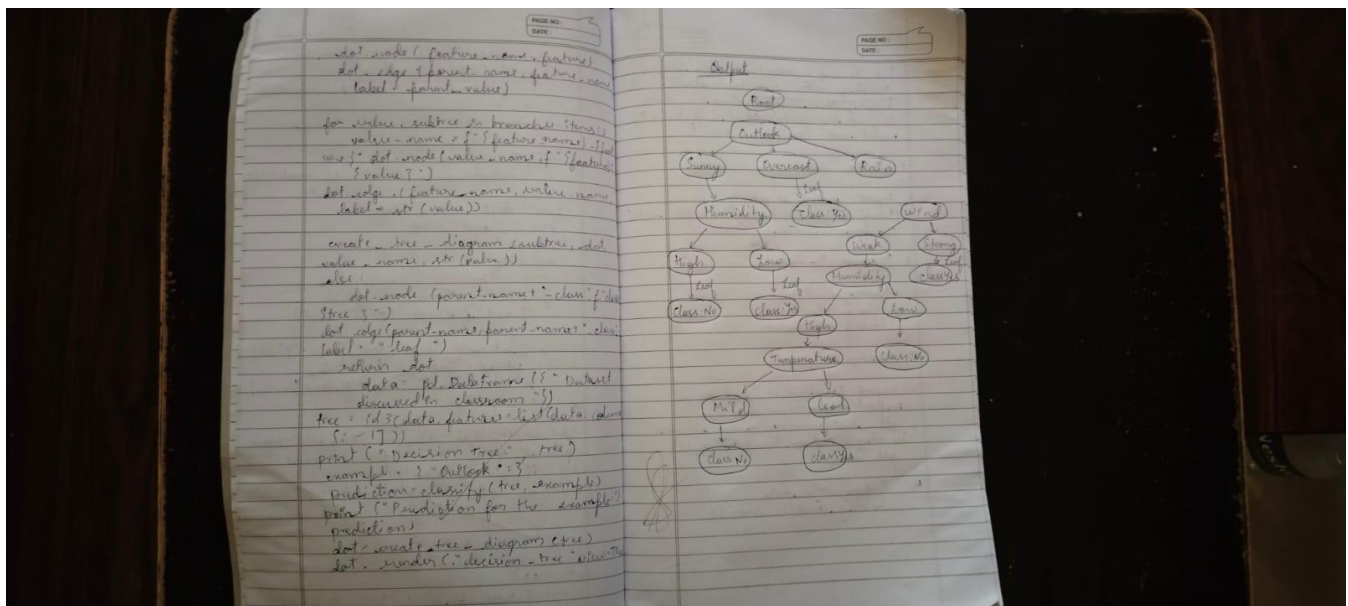 PAGE NO :
DATE :
dot. node ( feature_name, feature)
dot. edge ( parent_name, feature_name
label = parent_value)
for value, subtree in branches items()
value_name = f "{feature_name}_{feat
ure}" dot. node (value_name, f "{feature}:
{value}")
dot. edge. (feature_name, value_name
label = str (value))
create_tree_diagram (subtree, dot
value_name, str (value))
else:
dot. node (parent_name + "_class", f "class
{tree}")
dot edge(parent_name, parent_name + "_class
label = "leaf")
return dot
data = pd. DataFrame ({ "Dataset
discussed in classroom"})
tree = id3 (data, feature = list (data. colum
[: -1] ))
print ("Decision Tree:", tree)
example = { "Outlook" : }
prediction = classify (tree, example)
print ("Prediction for the example:",
prediction)
dot = create_tree_diagram (tree)
dot. render ("decision_tree" view = T
PAGE NO :
DATE :
Output
Root
Outlook
Sunny Overcast Rain
Leaf
Humidity Class: Yes Wind
Weak Strong
High Low Leaf
Humidity Class Yes
Leaf Leaf
Class No Class Yes Low
High
Temperature Class: No
Mild Cool
Class No Class Yes